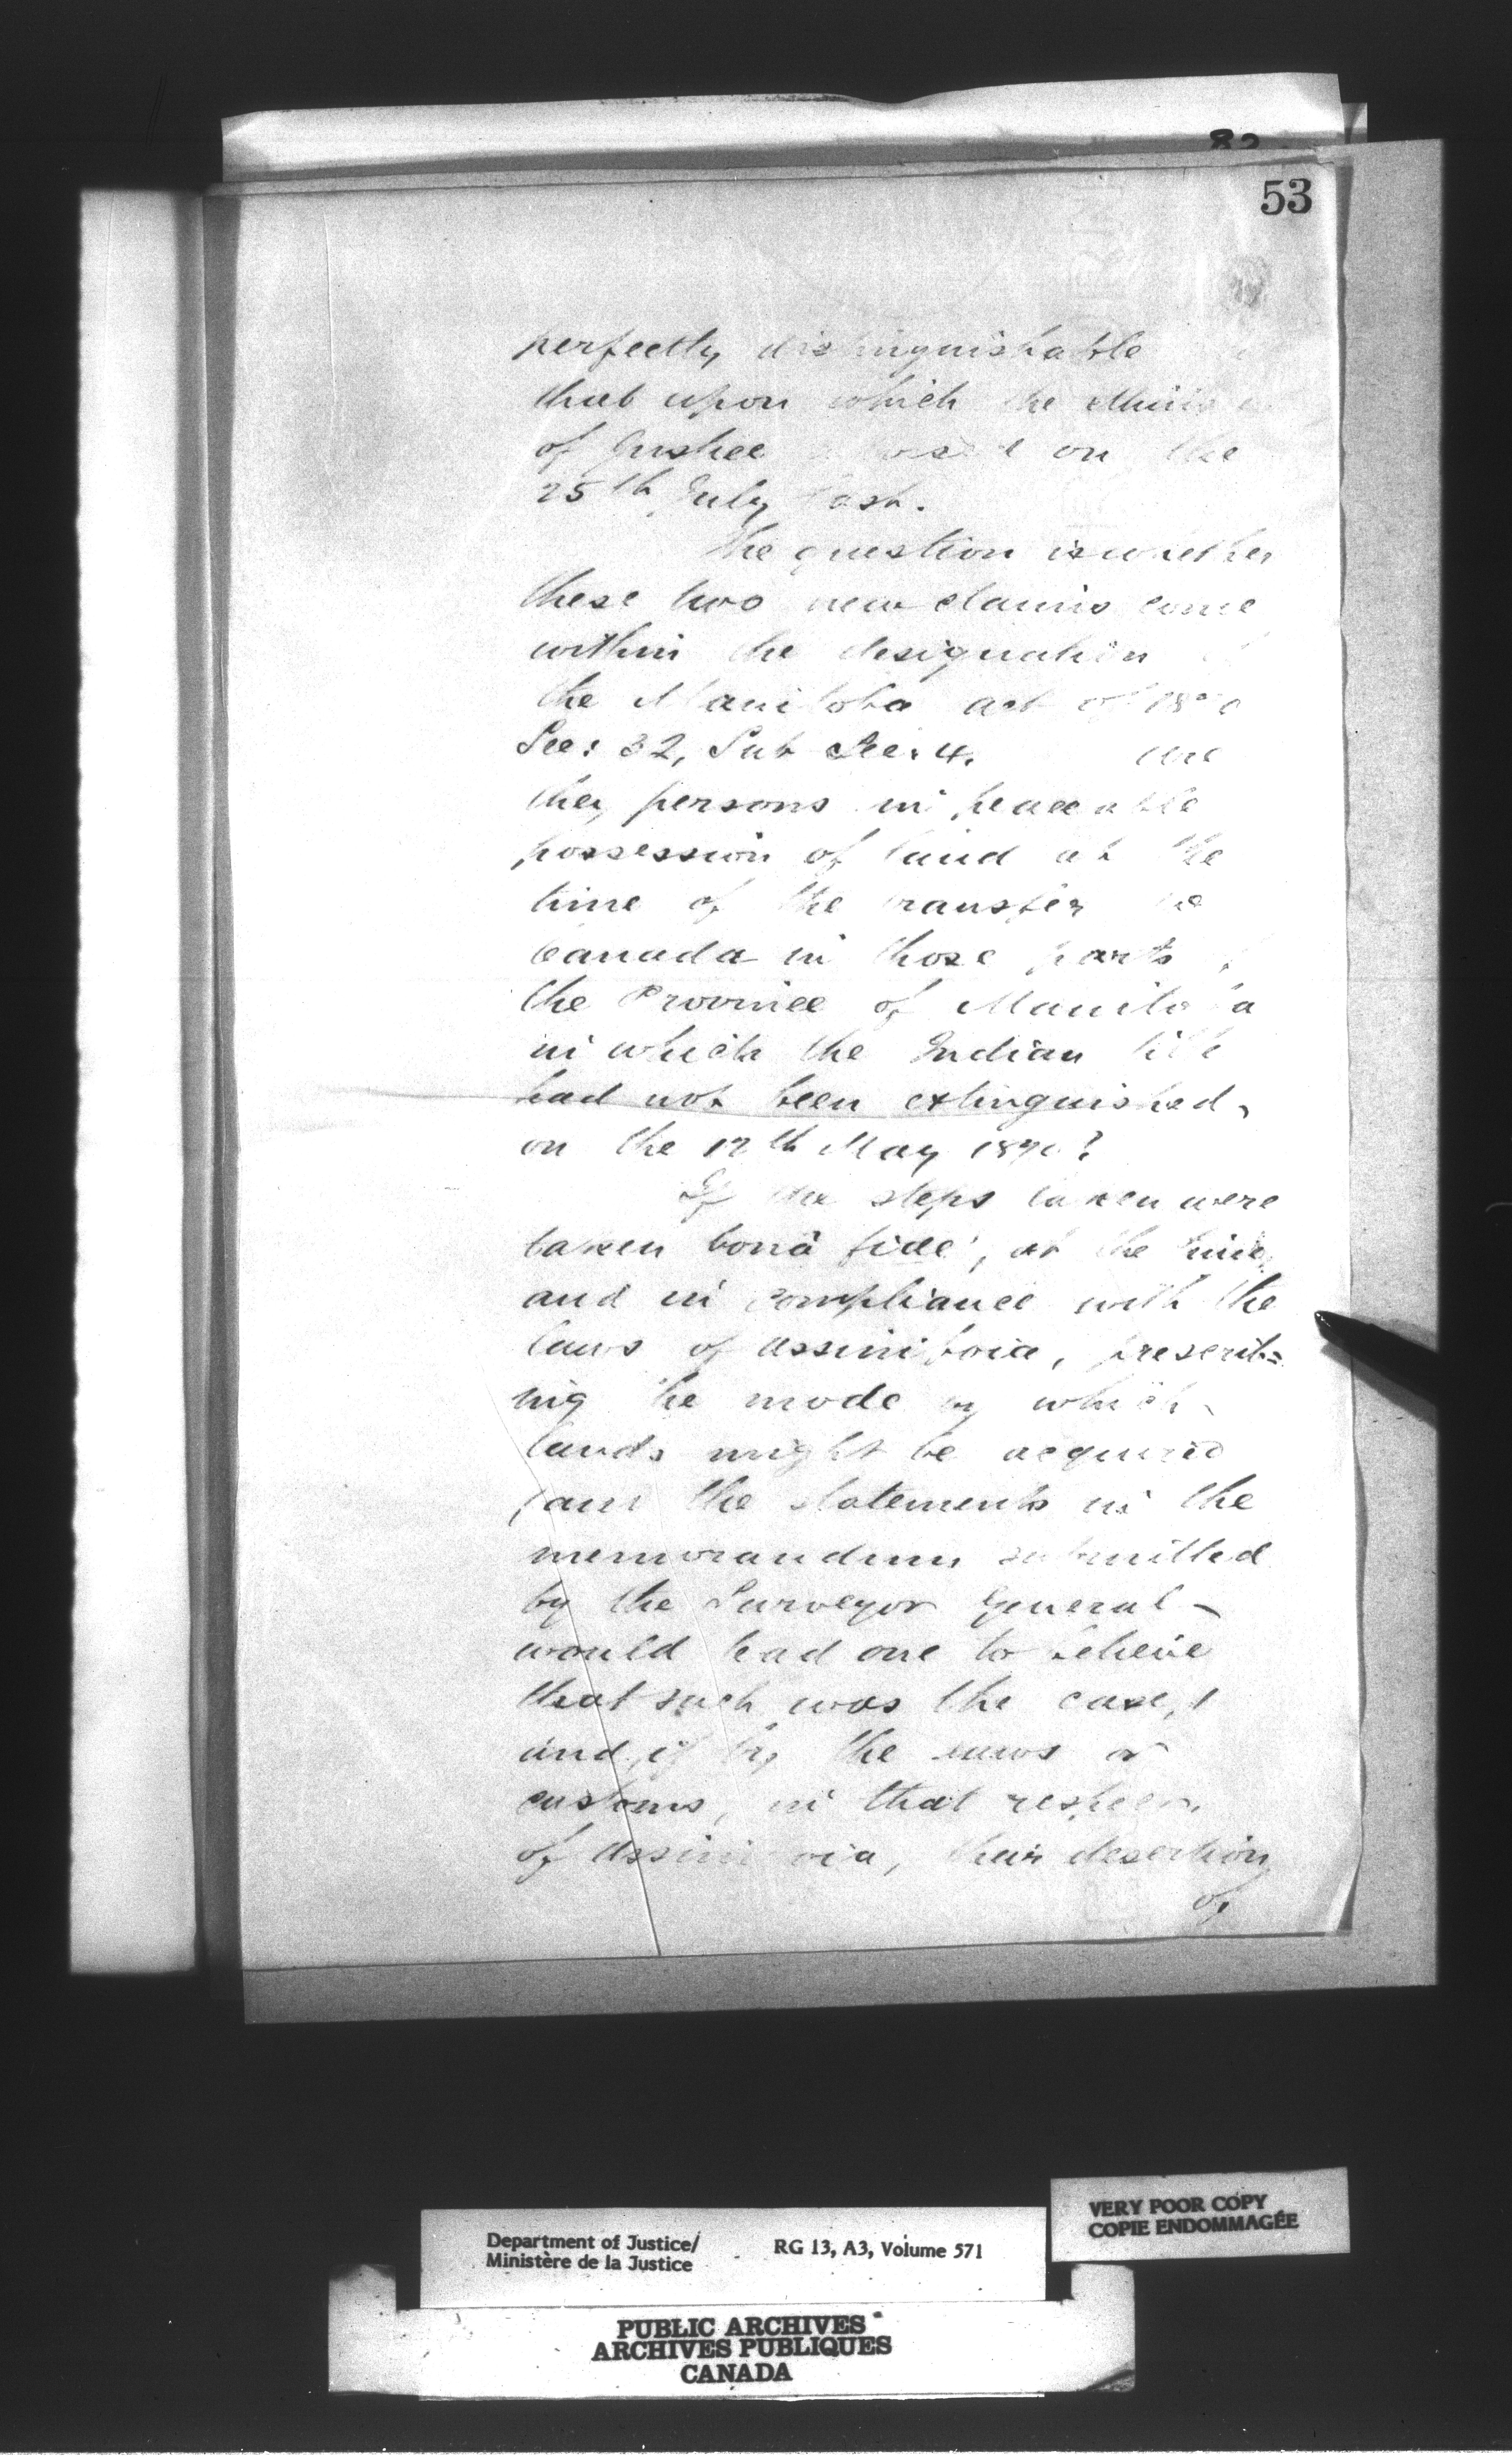 82
53
perfectly distinguishable
that upon which the Minister
of Justice on the
25th July last.
The question is whether
these two new claims come
within the designation
the Manitoba act of 1870
Sec: 32, Sub Sec: 4. are
they persons in peaceable
possession of land at the
time of the transfer to
Canada in those parts of
the Province of Manitoba
in which the Indian title
had not been extinguished,
on the 12th May 1870?
If the steps taken were
taken bonâ fide, at the time,
and in compliance with the
laws of Assiniboia, prescrib=
ing the mode by which
lands might be acquired
(and the statements in the
memorandum submitted
by the Surveyor General
would lead one to believe
that such was the case,)
and, if by the laws or
customs, in that respect,
of Assiniboia, their desertion
of
VERY POOR COPY
COPIE ENDOMMAGÉE
Department of Justice/
Ministère de la Justice
RG 13, A3, Volume 571
PUBLIC ARCHIVES
ARCHIVES PUBLIQUES
CANADA